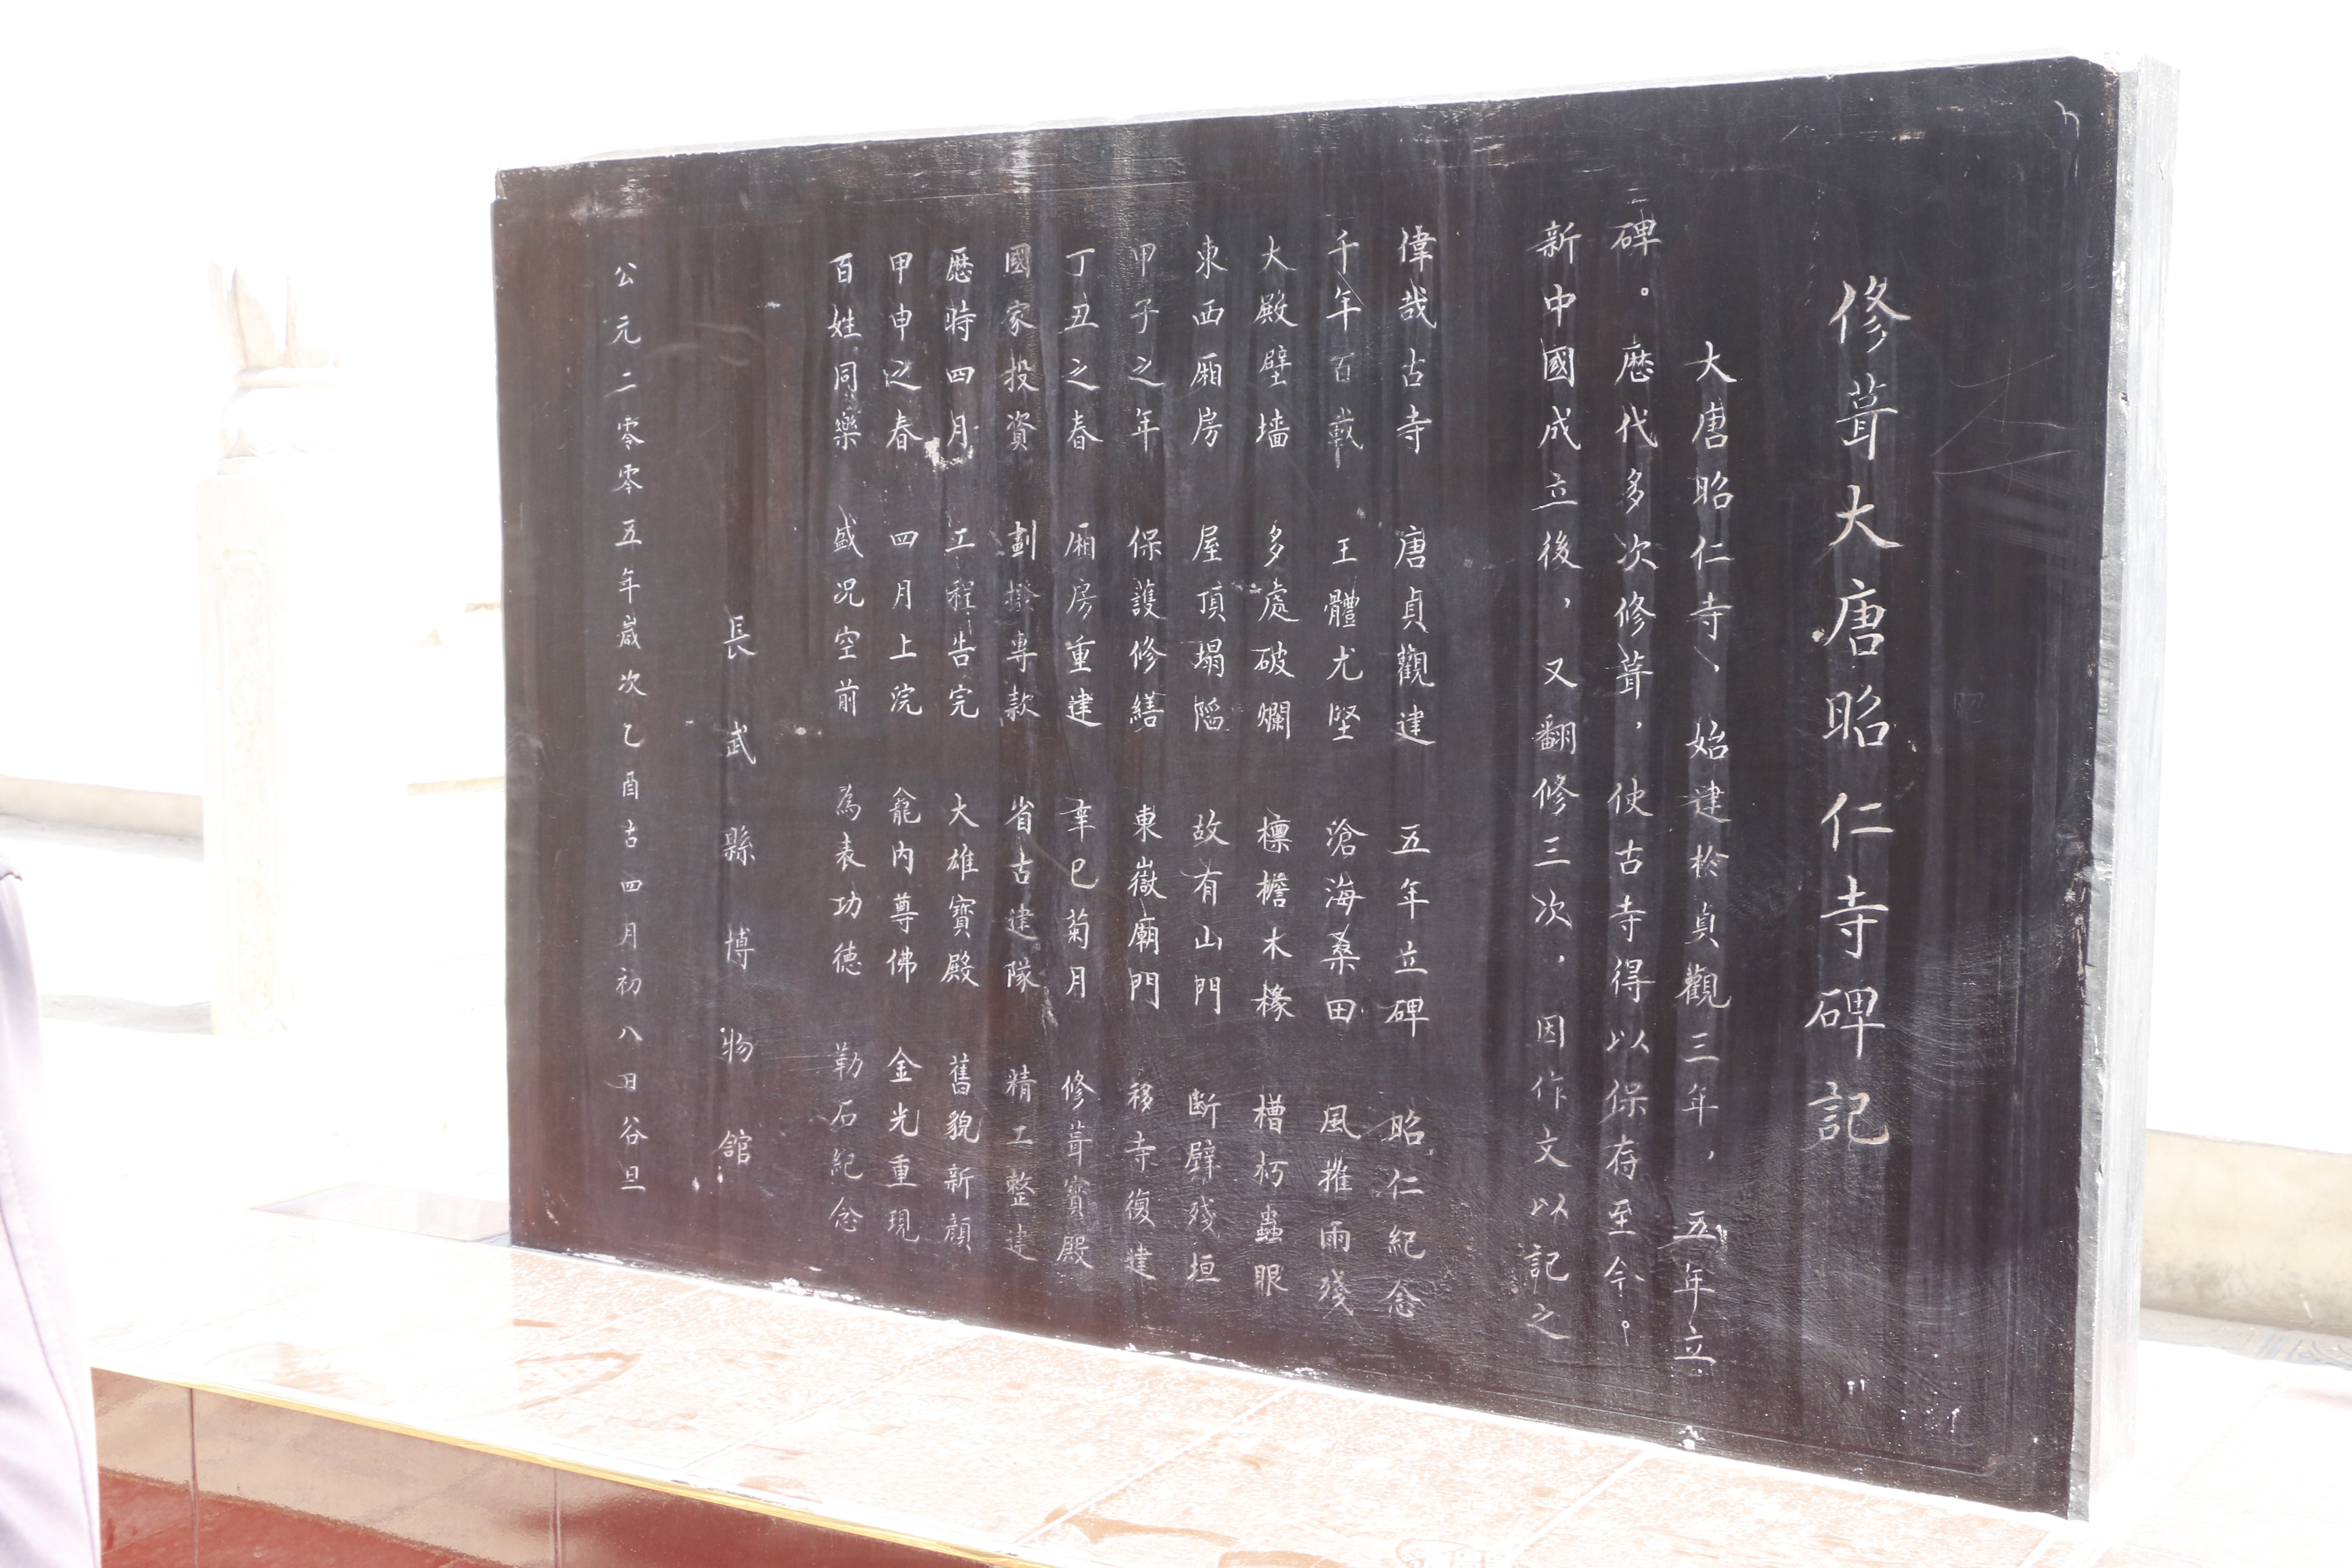 修葺大唐昭仁寺碑記
大唐昭仁寺、始建於貞觀三年，五年立
碑。歷代多次修葺，使古寺得以保存至今。
新中國成立後，又翻修三次，因作文以記之
偉哉古寺 唐貞觀建 五年立碑 昭仁紀念
千年百載 王體尤堅 滄海桑田 風摧雨殘
大殿壁墙 多處破爛 檩檐木椽 槽朽蟲眼
東西厢房 屋頂塌陷 故有山門 斷壁殘垣
甲子之年 保護修繕 東嶽廟門 移寺復建
丁丑之春 厢房重建 辛巳菊月 修葺寳殿
國家投資 劃撥專款 省古建隊 精工整建
歷時四月 工程告完 大雄寳殿 舊貌新顔
甲申之春 四月上浣 龕内尊佛 金光重現
百姓同樂 盛况空前 為表功德 勒石紀念
長武縣博物館
公元二零零五年歲次乙酉古四月初八日谷旦